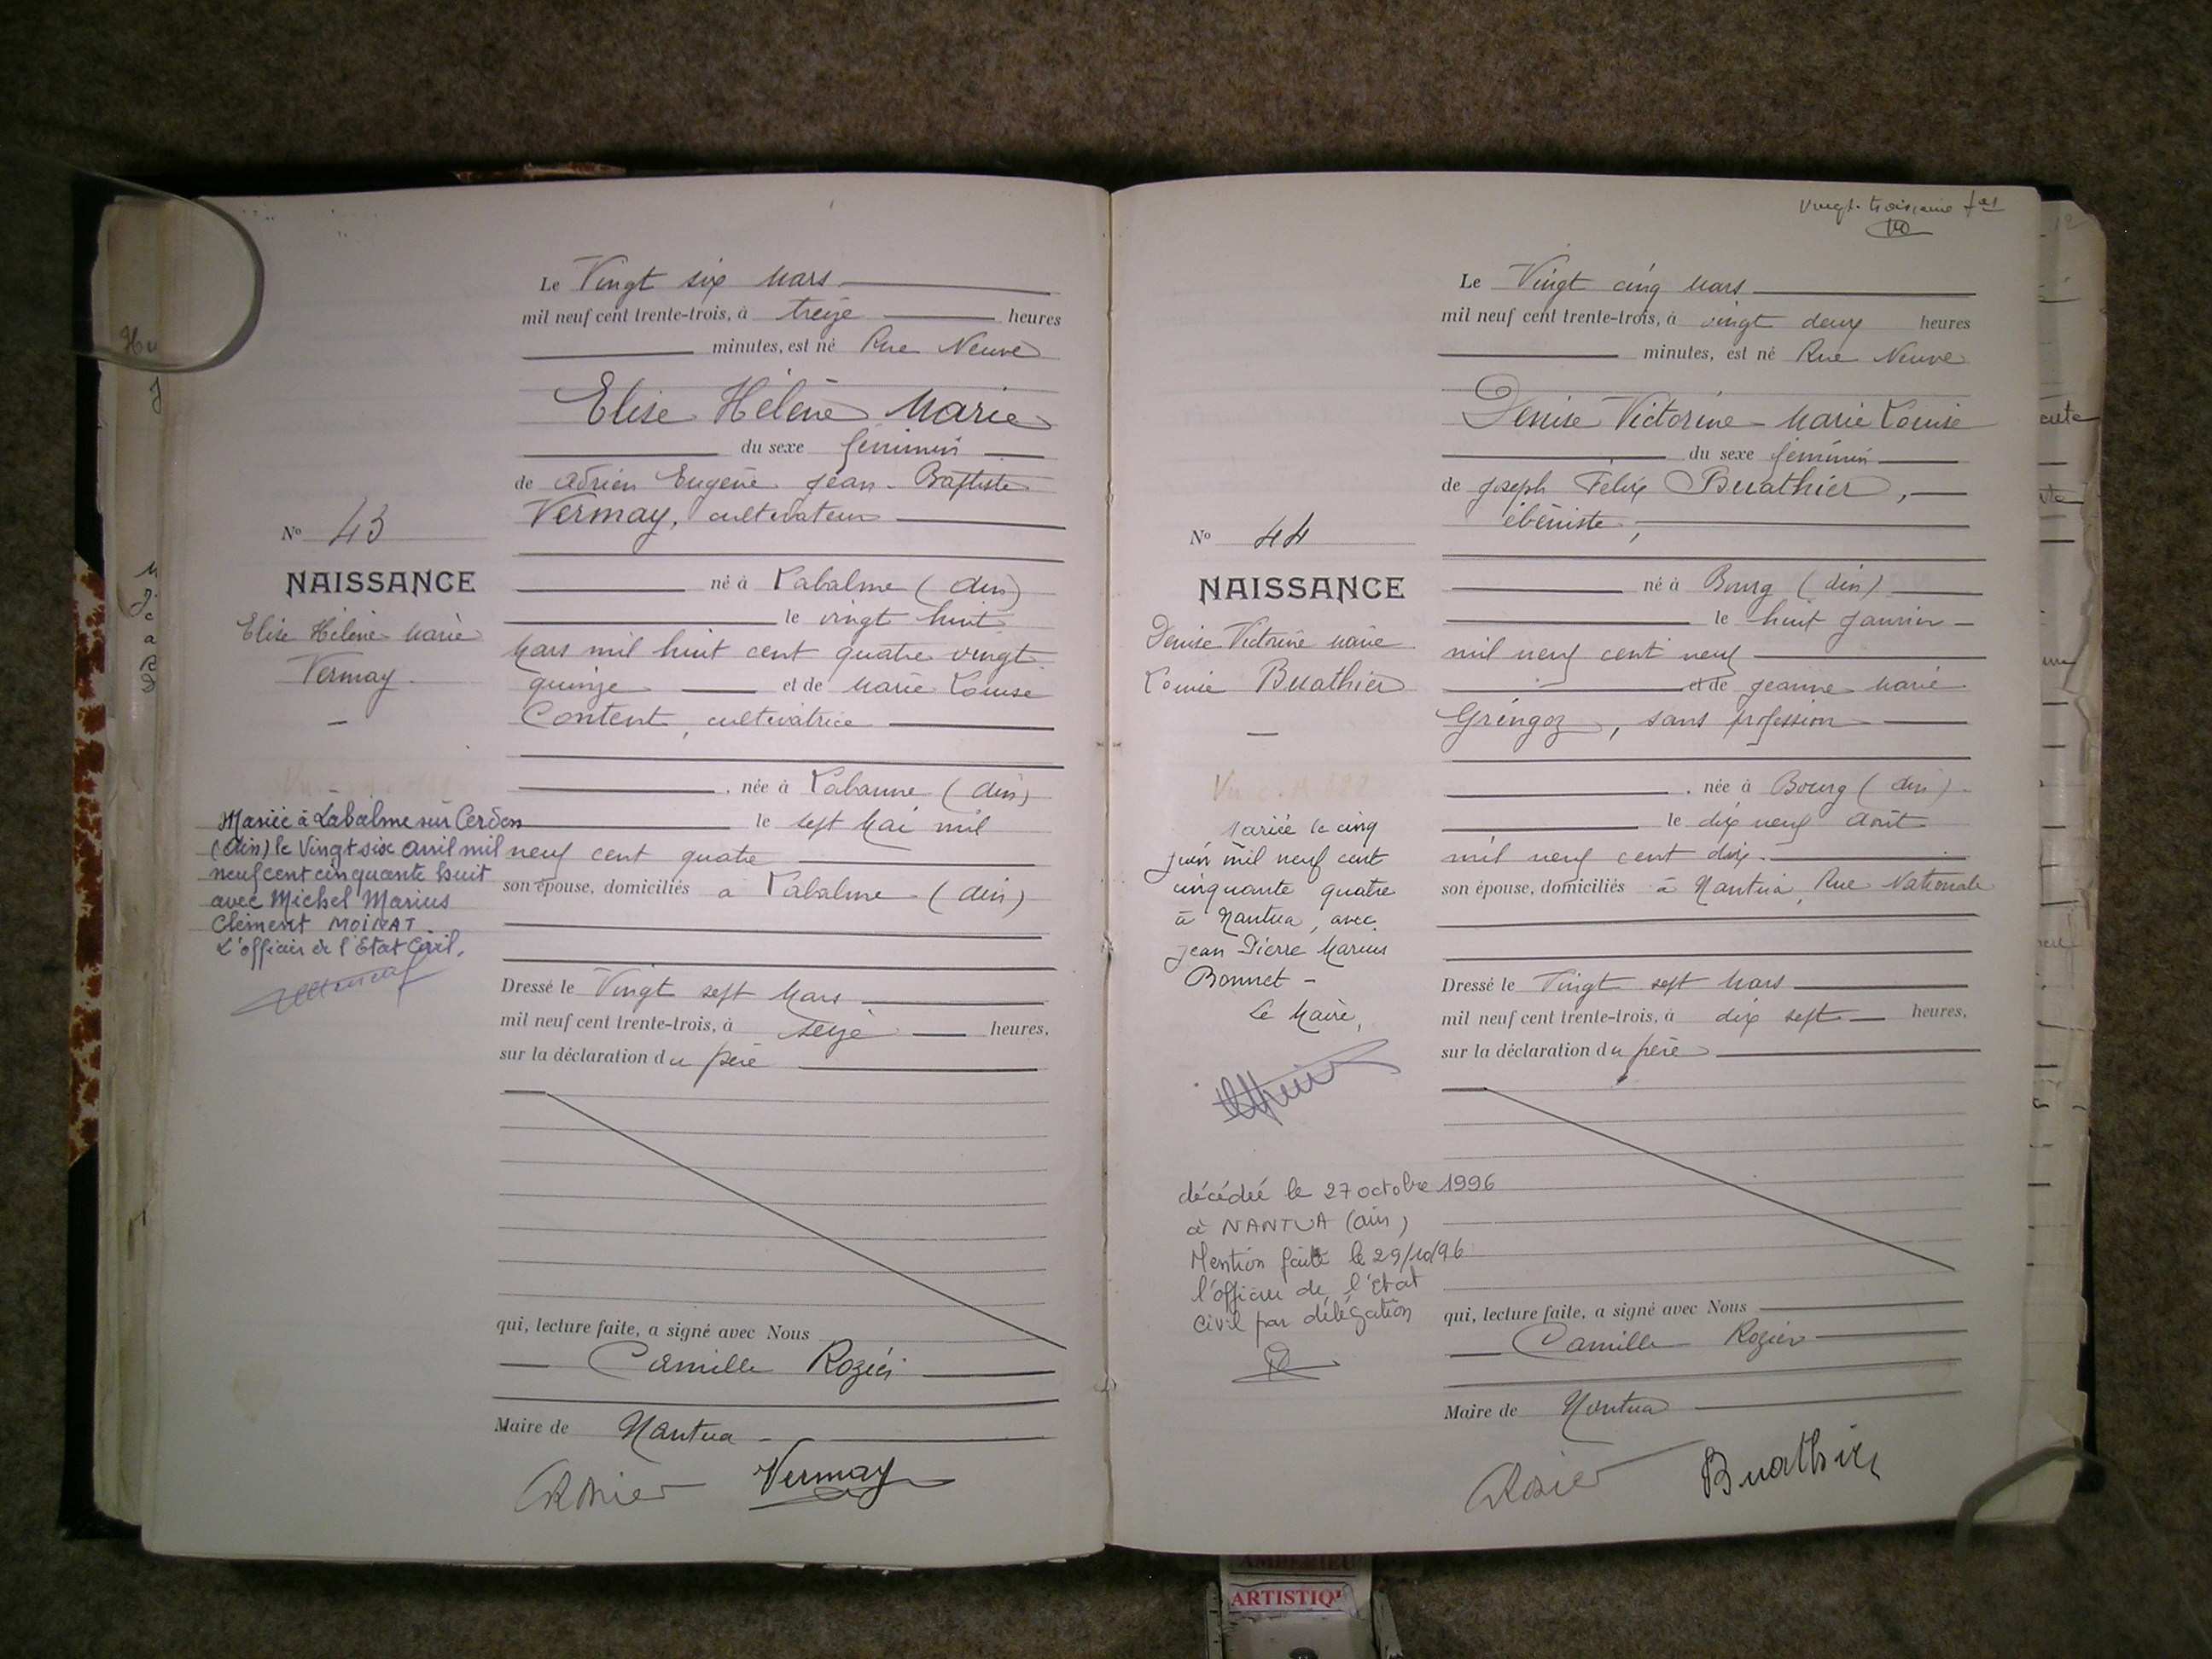 Le Vingt six Mars
mil neuf cent trente-trois, à treize heures
minutes, est né Rue Neuve
Elise Hélène Marie
du sexe féminin
de Adrien Eugène Jean-Baptiste
Vermay, cultivateur
né à Labalme (Ain)
le vingt huit
Mars mil huit cent quatre vingt
quinze et de Marie Louise
Content, cultivatrice
, née à (Ain)
le sept Mai mil
neuf cent quatre
son épouse, domiciliés à Labalme (Ain)
Dressé le Vingt sept Mars
mil neuf cent trente-trois, à seize heures,
sur la déclaration du père
qui, lecture faite, a signé avec Nous
Camille Rozier
Maire de Nantua
Vermay
No 43
NAISSANCE
Elise Hélène Marie
Vermay
Mariée à Labalme sur Cerdon
(Ain) le Vingt six Avril mil
neuf cent cinquante huit
avec Michel Marius
Clément MOINAT
L'officier de l'Etat Civil.
Vingt-troisième
Le Vingt cinq Mars
mil neuf cent trente-trois, à vingt deux heures
minutes, est né Rue Neuve
Denise Victorine Marie Louise
du sexe féminin
de Joseph Félix Buathier,
ébéniste,
né à Bourg (Ain)
le huit Janvier
mil neuf cent neuf
et de Jeanne Marie
Gréngoz, sans profession
, née à Bourg (Ain)
le dix neuf Août
mil neuf cent dix
son épouse, domiciliés à Nantua, Rue Nationale
Dressé le Vingt sept Mars
mil neuf cent trente-trois, à dix sept heures,
sur la déclaration du père
qui, lecture faite, a signé avec Nous
Camille Rozier
Maire de Nantua
Buathier
No 44
NAISSANCE
Denise Victorine Marie
Louise Buathier
Mariée le cinq
juin mil neuf cent
cinquante quatre
à Nantua, avec
Jean Pierre Marius
Bonnet -
Le Maire,
décédée le 27 octobre 1996
à NANTUA (Ain)
Mention faite le 29/10/96
l'officier de l'Etat
Civil par délégation
ARTISTIQ